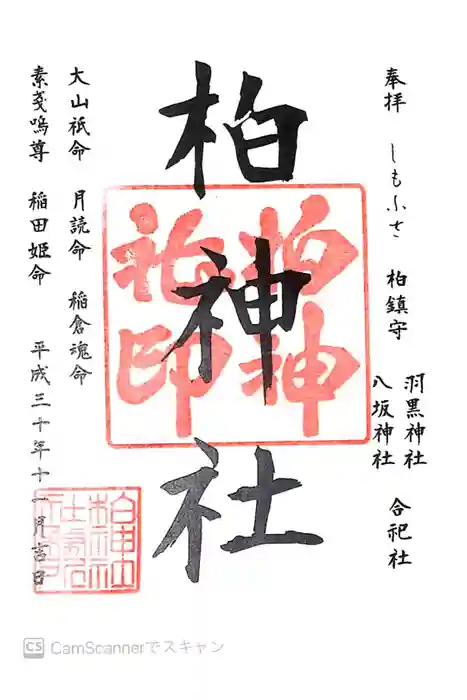 奉拝 しもふさ 柏鎮守 羽黒神社
八坂神社 合祀社
柏神社
柏神
社印
大山祇命 月読命 稲倉魂命
素戔嗚尊 稲田姫命 平成三十年十一月吉日
柏神社
CS CamScannerでスキャン